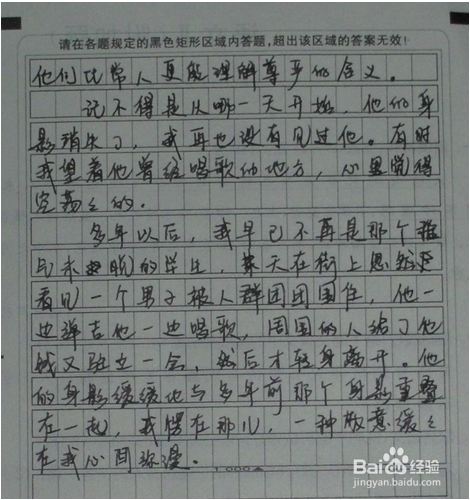 请在各题规定的黑色矩形区域内答题,超出该区域的答案无效!
他们比常人更能理解尊严的含义。
记不得是从哪一天开始,他的身
影消失了,我再也没有见过他。有时
我望着他曾经唱歌的地方,心里觉得
空荡々的。
多年以后,我早已不再是那个稚
气未脱的学生,某天在街上忽然
看见一个男子被人群团团围住,他一
边弹吉他一边唱歌,周围的人给了他
钱又驻立一会,然后才轻身离开。他
的身影缓缓地与多年前那个身影重叠
在一起,我愣在那儿,一种敬意缓々
在我心间弥漫。
Baidu经验
jingyan.baidu.com